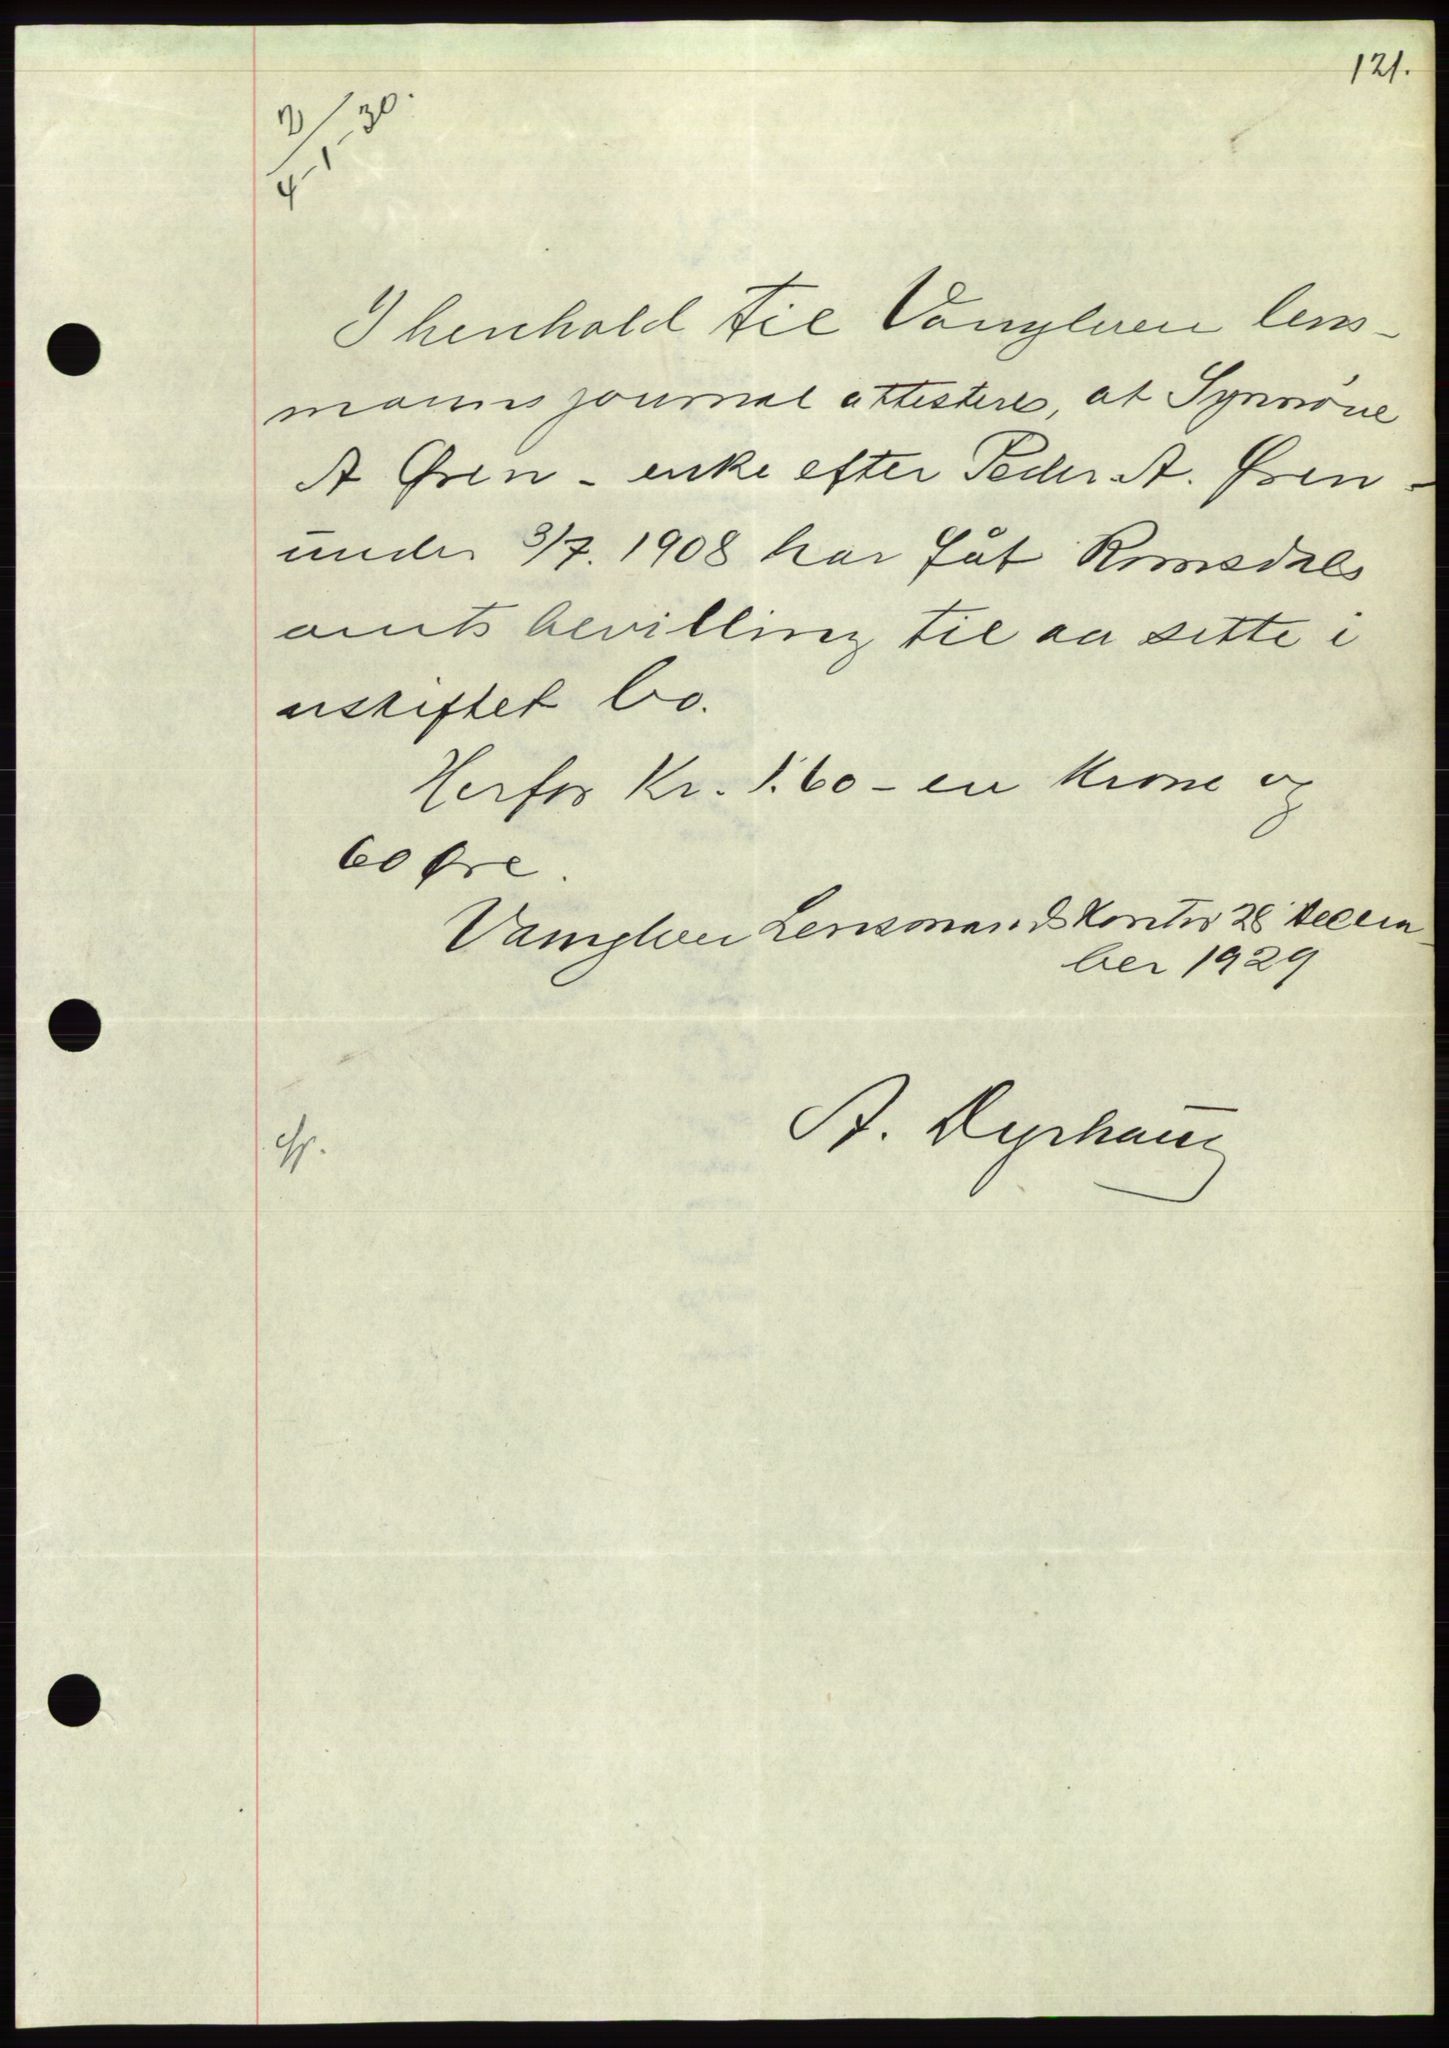 121.
2/4-1-30.
I henhold til Vanylven lens-
manns journal attesteres, at Synnøve
A Øren - enke efter Peder A. Øren -
under 3/7. 1908 har fåt Romsdals
amts bevilling til aa sitte i
uskiftet bo.
Herfor Kr. 1.60 - en krone og
60 øre.
Vanylven Lensmandskontor 28 decem-
ber 1929
A. Dyrhaug